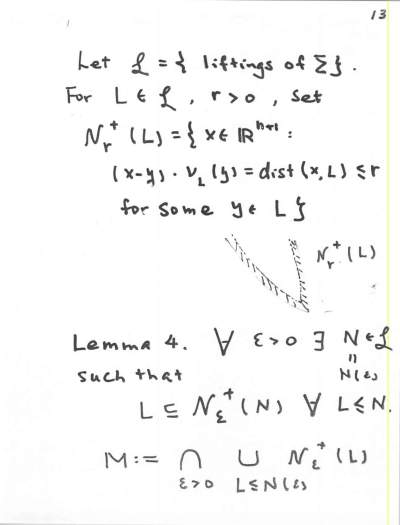 13
Let ℒ = { liftings of Σ}.
For L ∈ ℒ, r > 0, set
N_r^+ (L) = { x ∈ ℝ^{n+1} :
(x-y) · ν_L (y) = dist (x, L) ≤ r
for some y ∈ L }
N_r^+ (L)
Lemma 4. ∀ ε > 0 ∃ N ∈ ℒ
"
such that N(ε)
L ⊆ N_ε^+ (N) ∀ L ≤ N.
M := ∩ ∪ N_ε^+ (L)
ε>0 L≤N(ε)